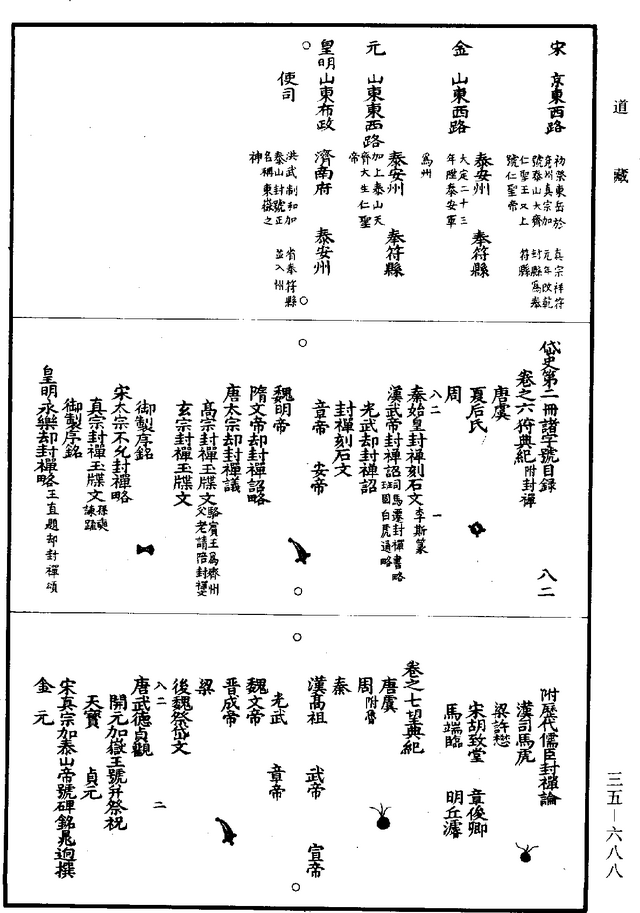 道藏
宋 京東西路 初祭東岳於兗州真宗加號泰山大齊仁聖王又上號仁聖帝 真宗祥符元年改乾封縣為奉符縣
金 山東西路 泰安州 大定二十三年陞泰安軍為州 奉符縣
元 山東東西路 加上泰山天齊大生仁聖帝 泰安州 奉符縣
皇明 山東布政使司 濟南府 洪武制和加泰山封號正名稱東嶽之神 泰安州 省奉符縣並入州
岱史第二冊諸字號目錄 八二
卷之六狩典紀 附封禪
唐虞
夏后氏
周
秦始皇封禪刻石文 李斯篆
八二 一
漢武帝封禪詔 司馬遷封禪書略 班固白虎通略
光武却封禪詔
封禪刻石文
章帝 安帝
魏明帝
隋文帝却封禪詔略
唐太宗却封禪議
高宗封禪玉牒文 駱賓王為齊州父老請陪封禪文
玄宗封禪玉牒文
御製序銘
宋太宗不允封禪略
真宗封禪玉牒文 孫奭諫疏
御製序銘
皇明永樂却封禪略 王直題却封禪頌
附歷代儒臣封禪論
漢司馬虎
梁許懋
宋胡致堂 章俊卿
馬端臨 明丘濬
卷之七望典紀
唐虞
周 附魯
秦
漢高祖 武帝 宣帝
光武 章帝
魏文帝
晉成帝
梁
後魏祭岱文
八二 二
唐武德貞觀
開元加嶽王號升祭祝
天寶 貞元
宋真宗加泰山帝號碑銘晁迥撰
金 元
三五—六八八